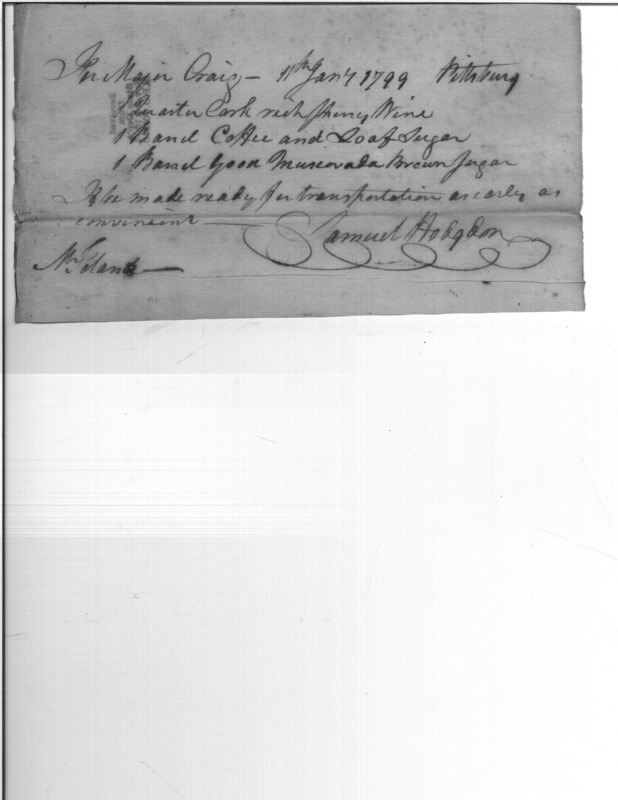 For Major Craig — 11th Jany 1799 Pittsburg
1 Quarter Cask rich Sherry Wine
1 Barrel Coffee and Loaf Sugar
1 Barrel Good Muscovada Brown Sugar
To be made ready for transportation as early as
convenient —
Samuel Hodgdon
Mr